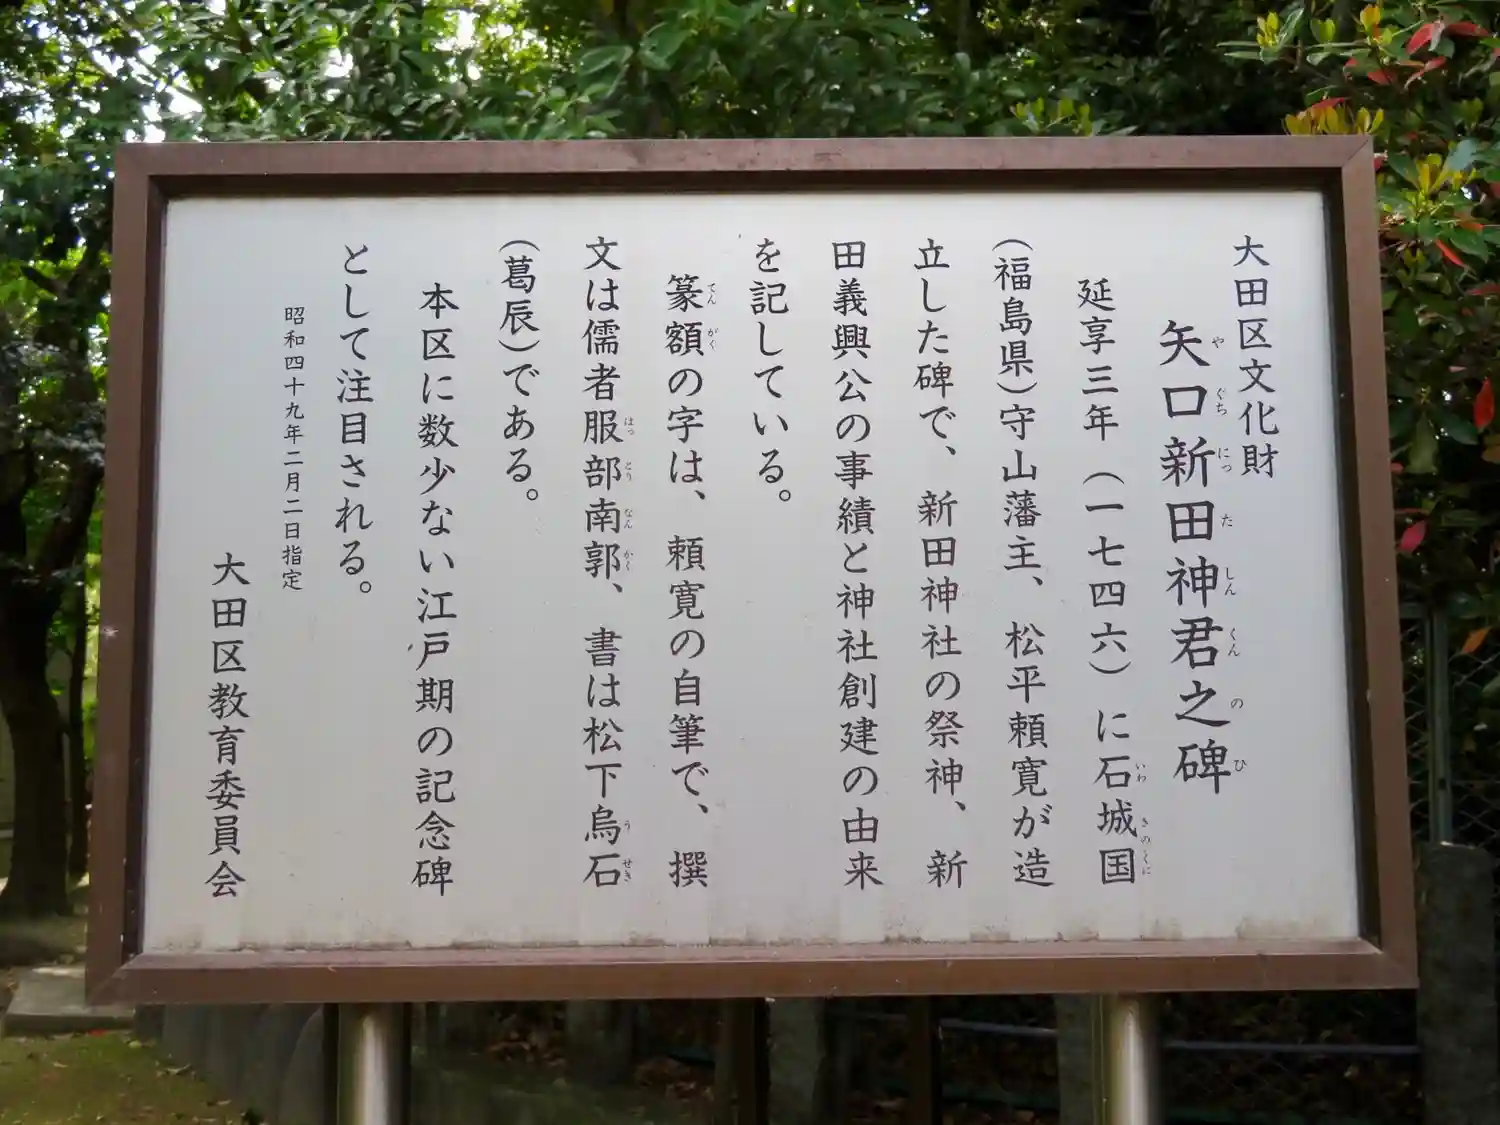 大田区文化財
矢口新田神君之碑
延享三年（一七四六）に石城国
（福島県）守山藩主、松平頼寛が造
立した碑で、新田神社の祭神、新
田義興公の事績と神社創建の由来
を記している。
篆額の字は、頼寛の自筆で、撰
文は儒者服部南郭、書は松下烏石
（葛辰）である。
本区に数少ない江戸期の記念碑
として注目される。
昭和四十九年二月二日指定
大田区教育委員会